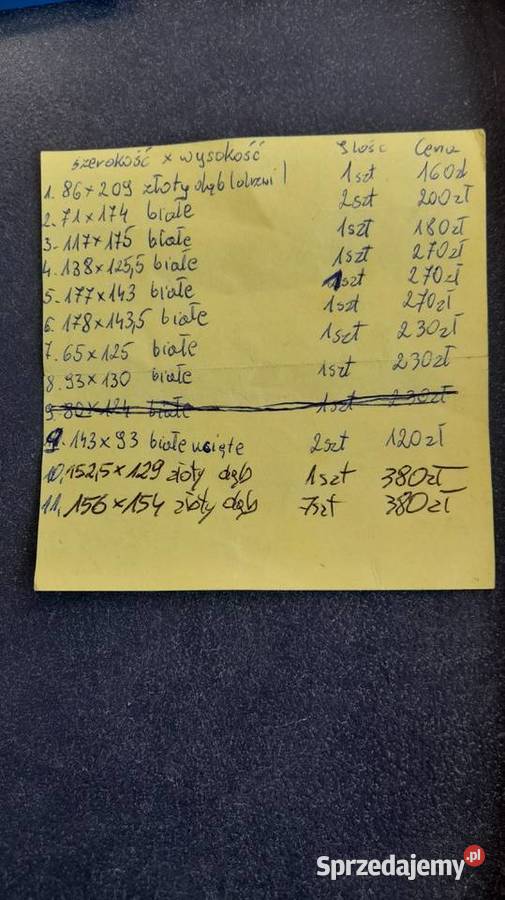 szerokość x wysokość Ilość Cena
1. 86x209 złoty dąb (drzwi) 1szt 160zł
2. 71x174 białe 2szt 200zł
3. 117x175 białe 1szt 180zł
4. 138x125,5 białe 1szt 270zł
5. 177x143 białe 1szt 270zł
6. 178x143,5 białe 1szt 270zł
7. 65x125 białe 1szt 230zł
8. 93x130 białe 1szt 230zł
9. 80x124 białe 1szt 230zł
9. 143x93 białe ucięte 2szt 120zł
10. 152,5x129 złoty dąb 1szt 380zł
11. 156x154 złoty dąb 7szt 380zł
Sprzedajemy.pl